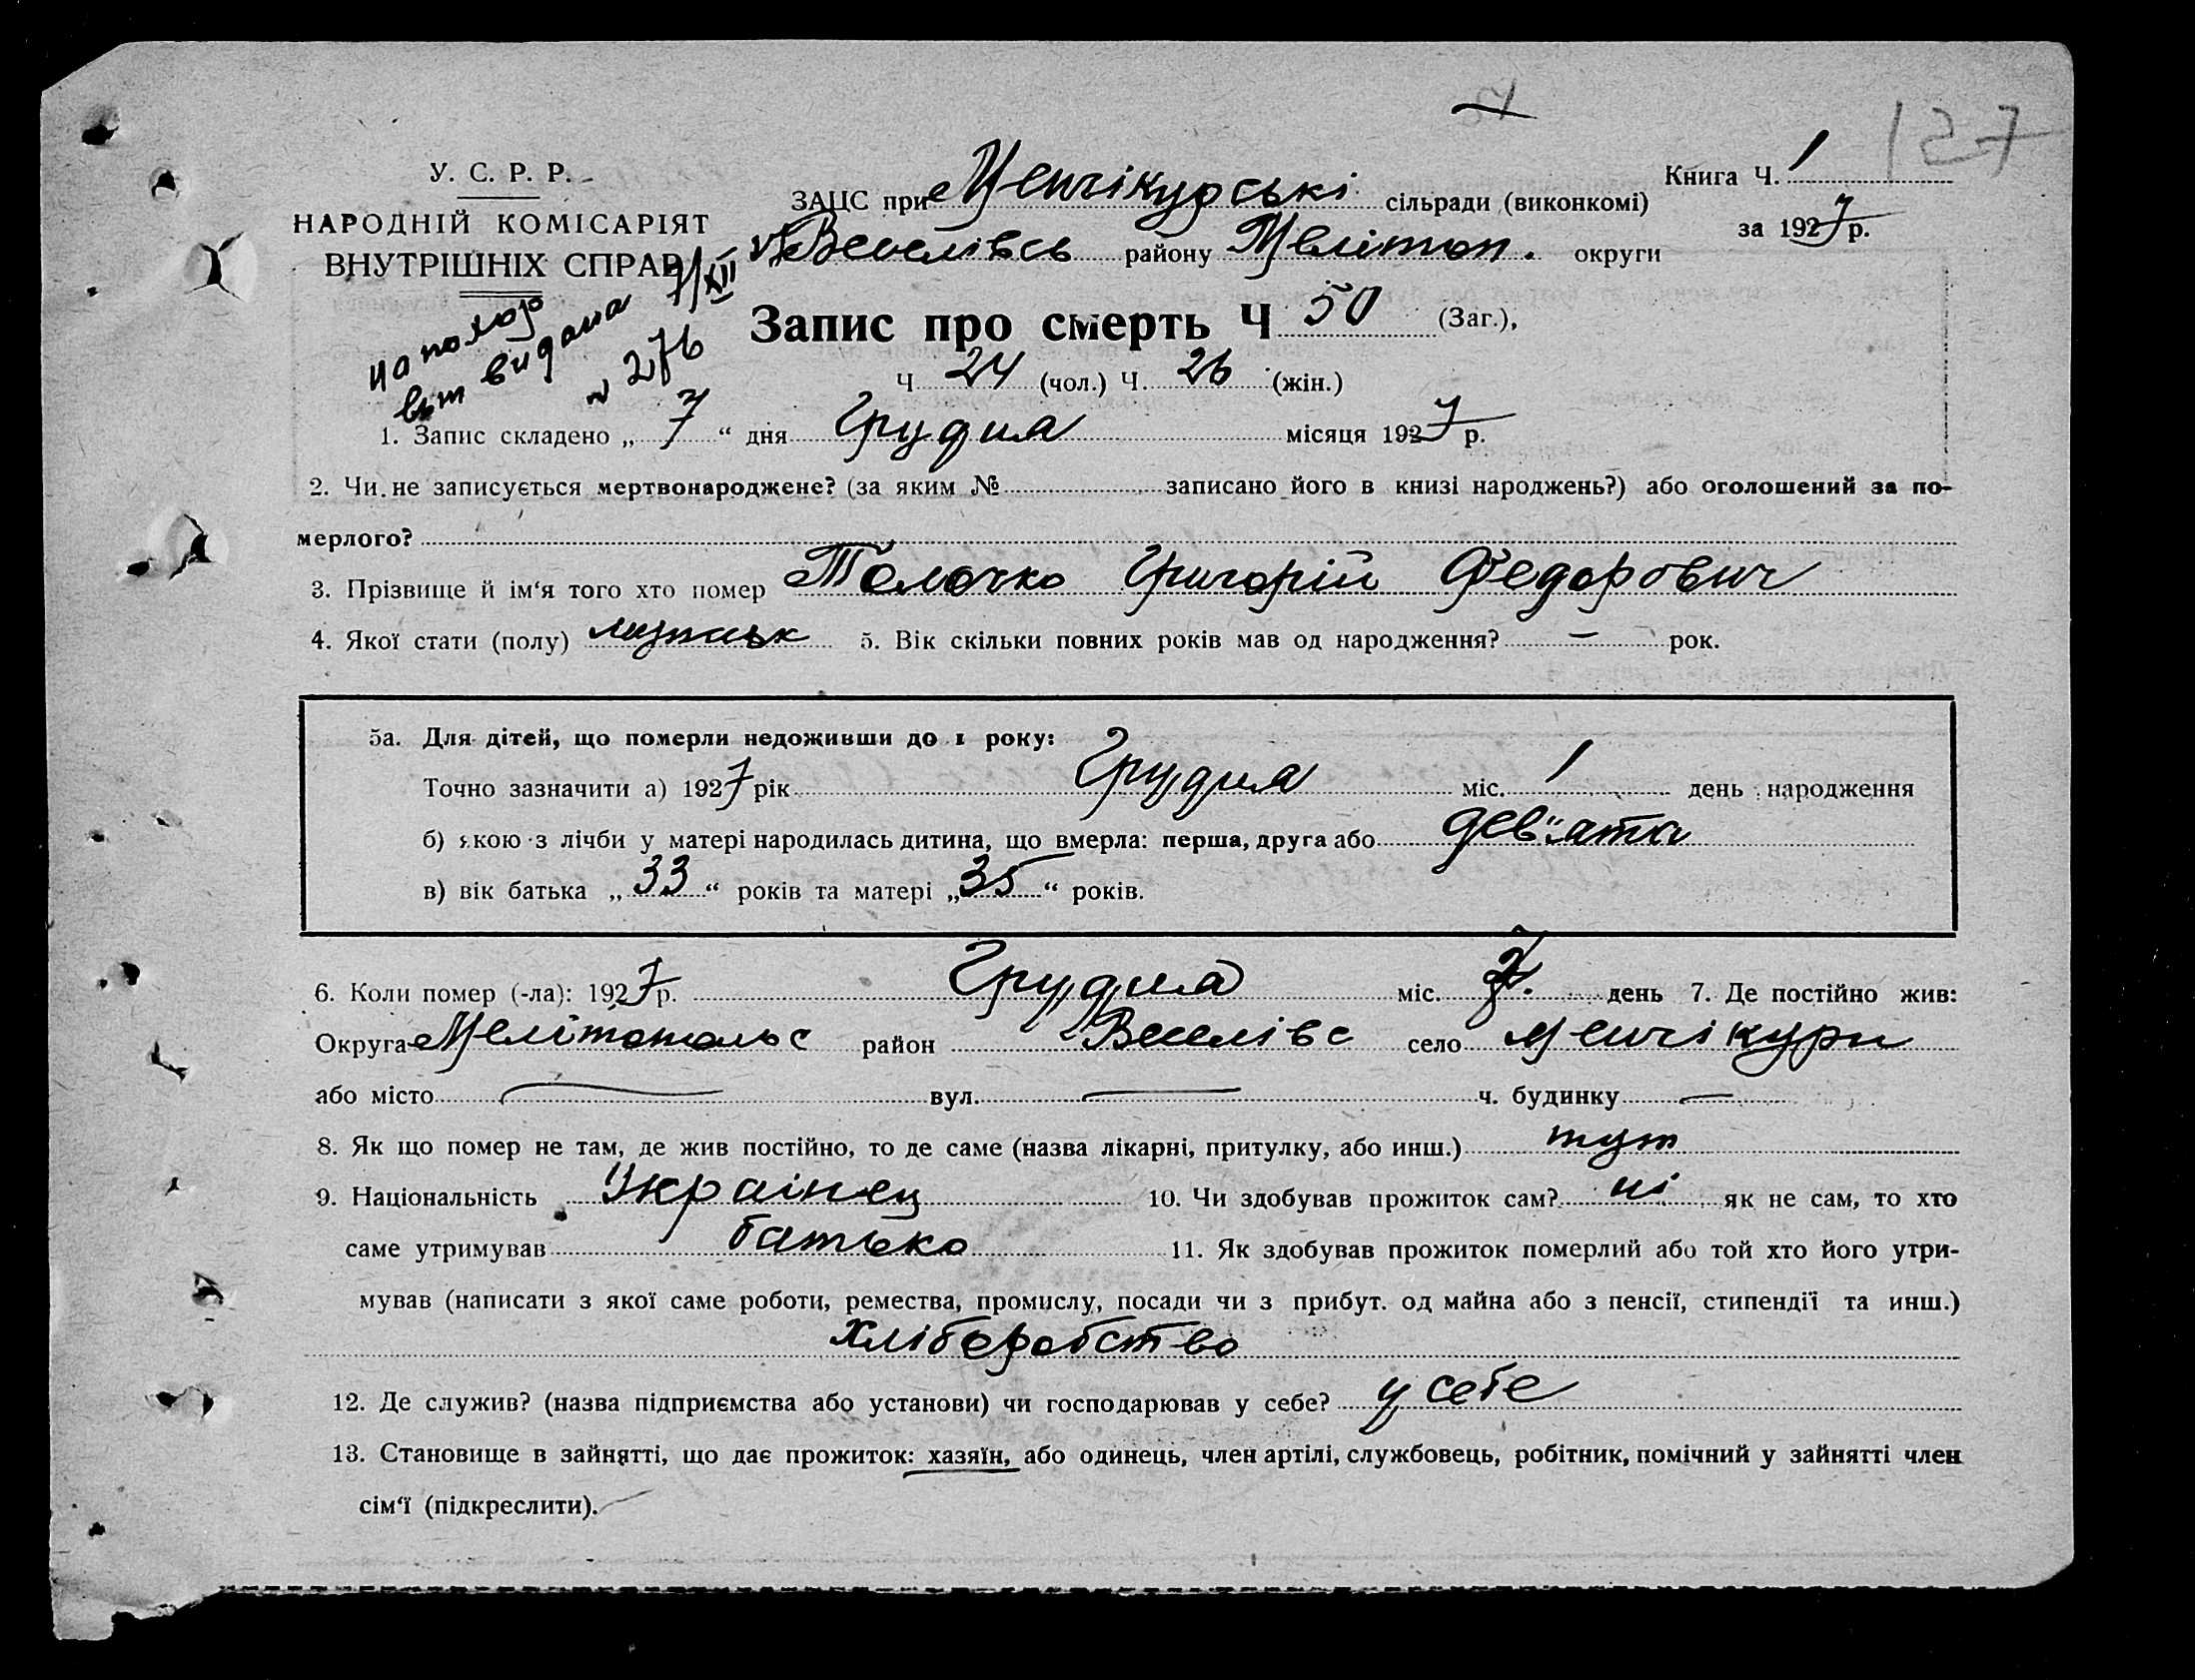 127
У. С. Р. Р.
НАРОДНІЙ КОМІСАРІЯТ
ВНУТРІШНІХ СПРАВ
ЗАЦС при Менчікурські сільради (виконкомі)
Книга Ч. 1
Веселівсь району Меліtoп. округи
за 1927 р.
7/XII
на похор
видана
№ 276
Запис про смерть Ч 50 (Заг.),
Ч 24 (чол.) Ч. 26 (жін.)
1. Запис складено „ 7 “ дня Грудня місяця 1927 р.
2. Чи не записується мертвонароджене? (за яким № записано його в книзі народжень?) або оголошений за по-
мерлого?
3. Прізвище й ім‘я того хто помер Толочко Григорій Федорович
4. Якої стати (полу) мужськ 5. Вік скільки повних років мав од народження? — рок.
5а. Для дітей, що померли недоживши до 1 року:
Точно зазначити а) 1927 рік Грудня міс. 1 день народження
б) якою з лічби у матері народилась дитина, що вмерла: перша, друга або дев'ята
в) вік батька „ 33 “ років та матері „ 35 “ років.
6. Коли помер (-ла): 1927 р. Грудня міс. день 7. Де постійно жив:
Округа Мелітопольс район Веселівс село Менчікури
або місто — вул. — ч. будинку —
8. Як що помер не там, де жив постійно, то де саме (назва лікарні, притулку, або инш.) тут
9. Національність Украінец 10. Чи здобував прожиток сам? ні як не сам, то хто
саме утримував батько 11. Як здобував прожиток померлий або той хто його утри-
мував (написати з якої саме роботи, ремества, промислу, посади чи з прибут. од майна або з пенсії, стипендії та инш.)
хліборобство
12. Де служив? (назва підприємства або установи) чи господарював у себе? у себе
13. Становище в зайнятті, що дає прожиток: хазяїн, або одинець, член артілі, службовець, робітник, помічний у зайнятті член
сім‘ї (підкреслити).